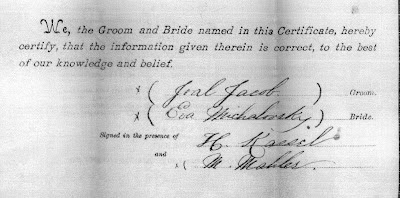 We, the Groom and Bride named in this Certificate, hereby
certify, that the information given therein is correct, to the best
of our knowledge and belief.
x ( Jeal Jacob ) Groom.
x ( Eva Michalovsky ) Bride.
Signed in the presence of H. Kassel
and x ( M. Mahler.